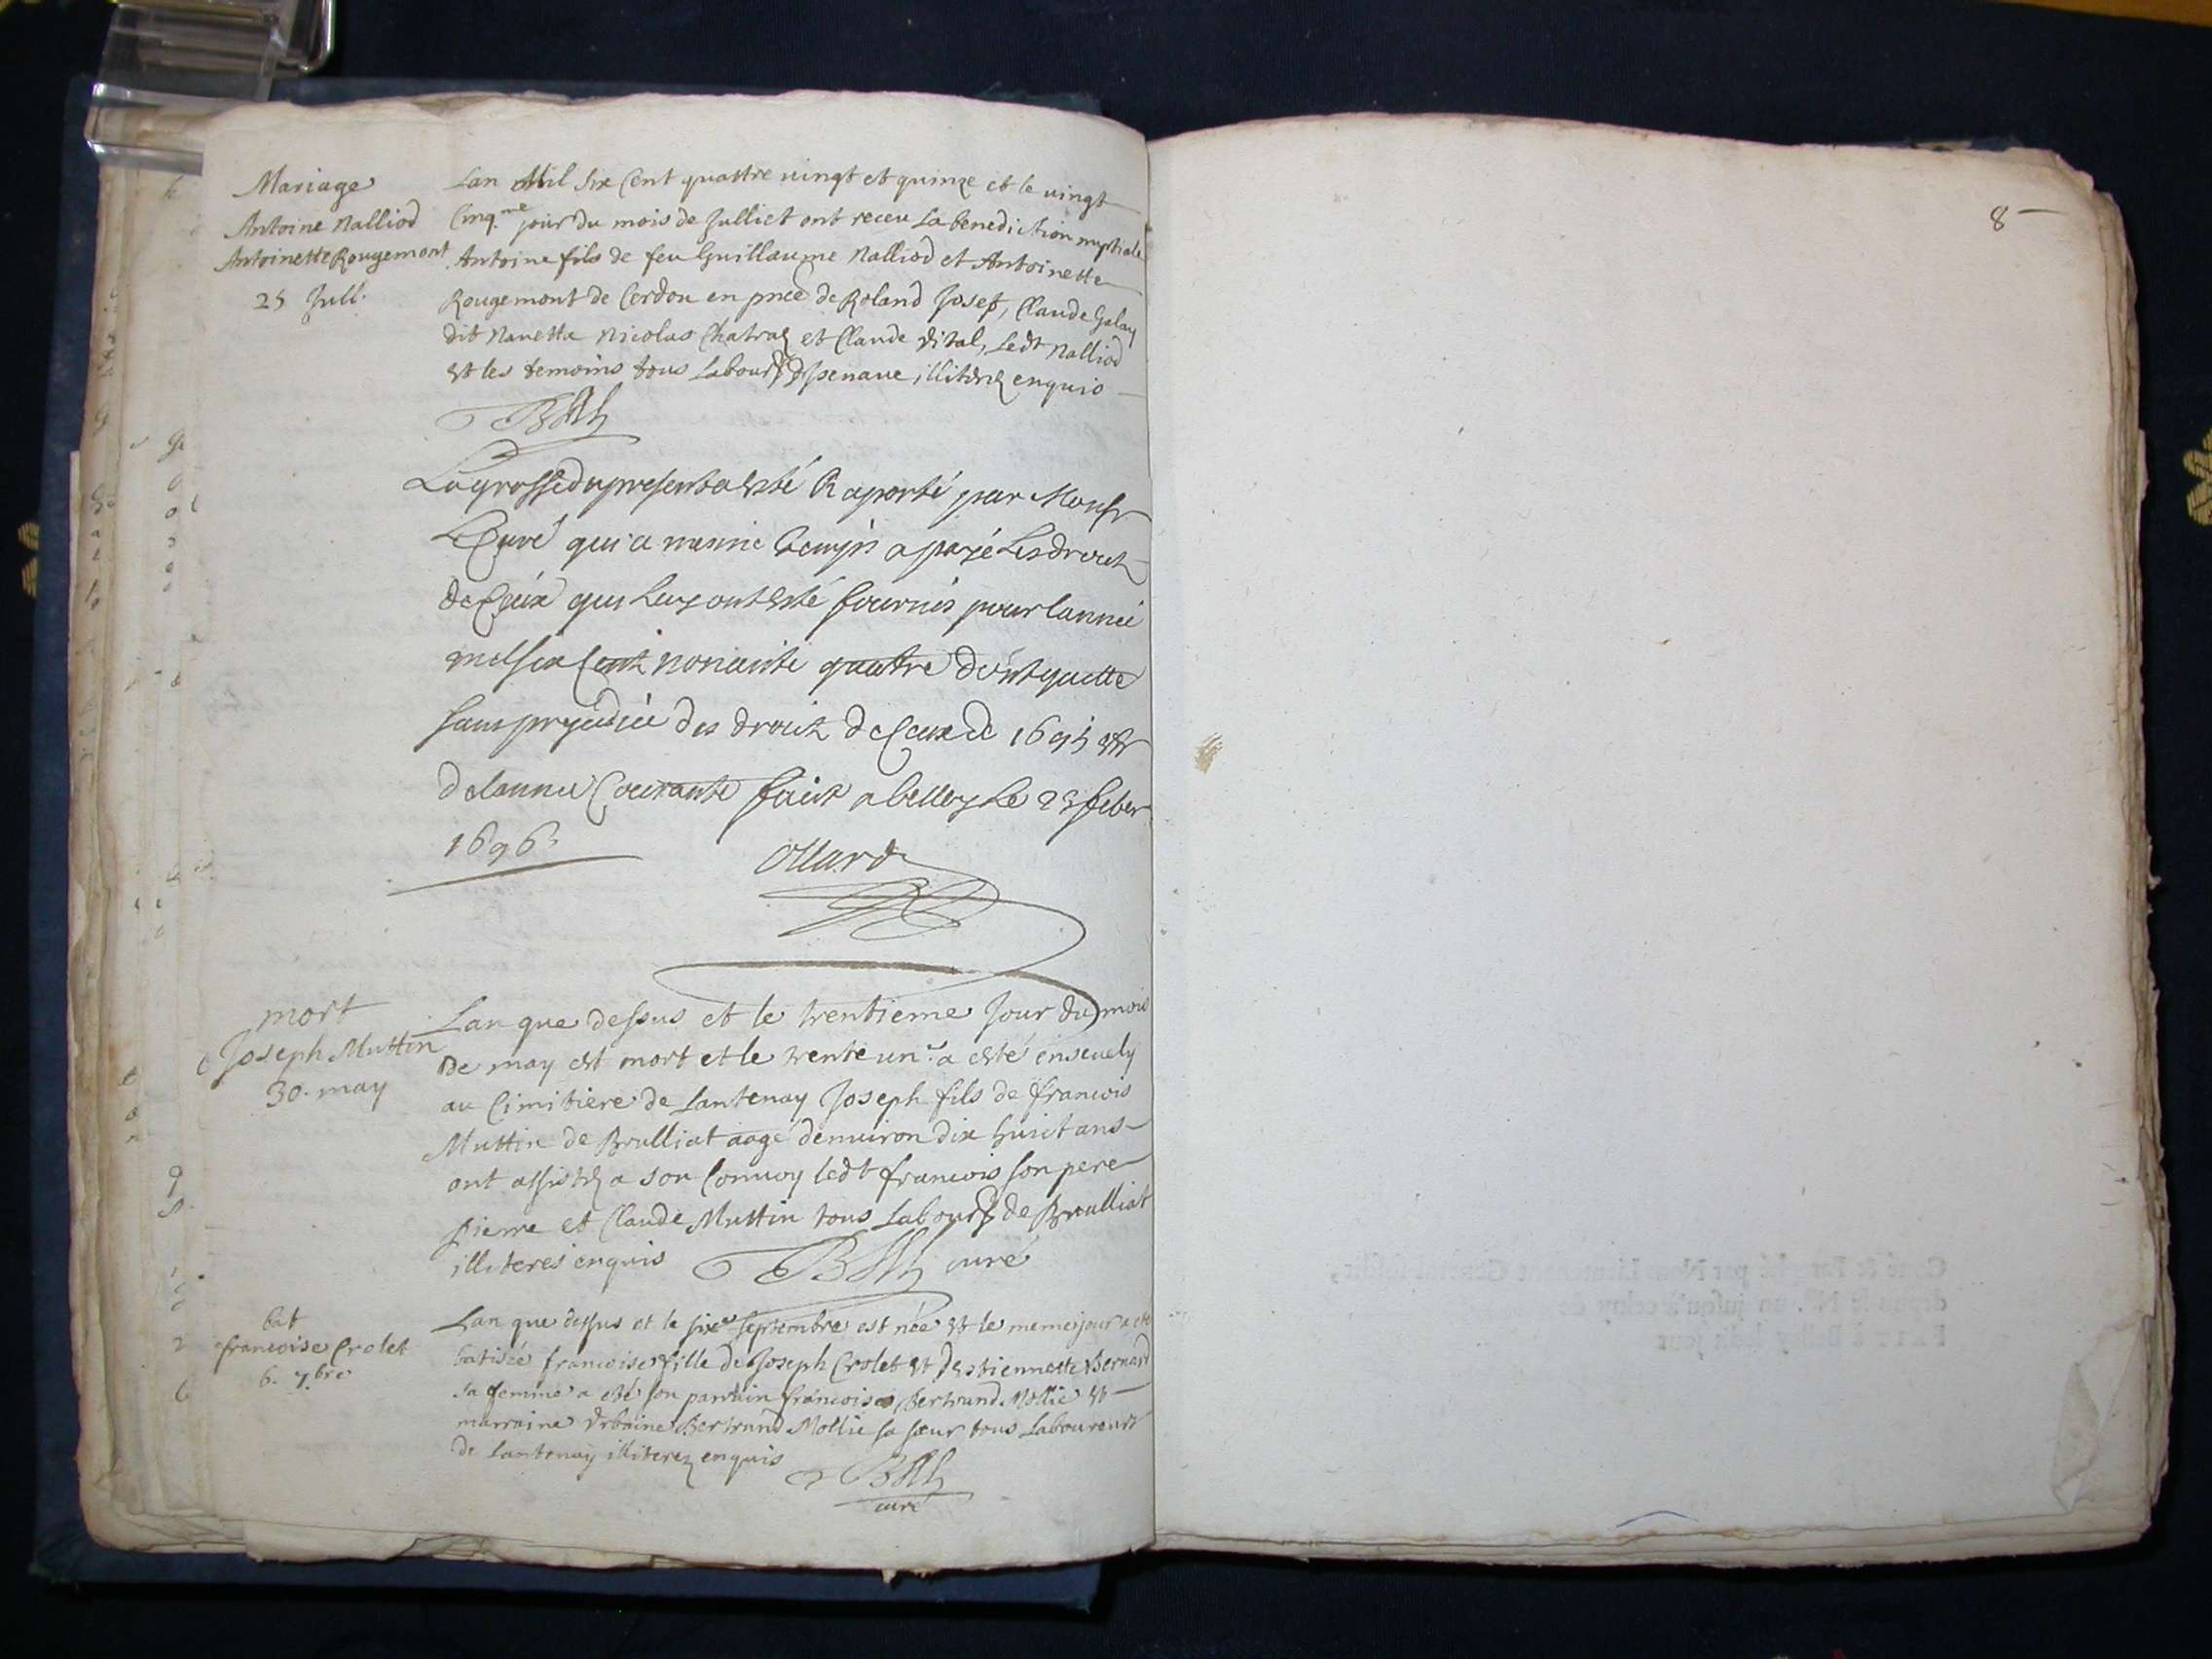 Mariage
Antoine Nalliod
Antoinette Rougemont
25 Jull.
Lan Mil six Cent quattre vingt et quinze et le vingt
Cinq.me jour du mois de Julliet ont receu La benediction nuptiale
Antoine fils de feu Guillaume Nalliod et Antoinette
Rougemont de Cerdon en pnce de Roland Josep, Claude Galay
dit Nanette Nicolas Chatraz et Claude Vital, Ledt Nalliod
et les temoins tous Labours illiterez enquis
La grosse du present a esté Raporté par Monsr
Le Curé qui a mesme temps a payé Les droits
de Ceux qui Luy ont esté fournis pour lannée
mil six Cent nonante quattre dont quitte
sans prejudice des droits de Ceux de 1695 et
de lannée Courante fait a belley Le 25 feber
1696.
Ollard
mort
Joseph Muttin
30. may
Lan que dessus et le trentieme Jour du mois
de may est mort et le trente un.e a esté ensevely
au Cimitiere de Lantenay Joseph fils de francois
Muttin de Brulliat aagé denviron dix huict ans
ont assistez a son Convoy ledt francois son pere
pierre et Claude Muttin tous Labours de Brulliat
illiteres enquis curé
bat
francoise Crolet
6. 7.bre
Lan que dessus et le sixe septembre est née et le meme jour a eté
batisée francoise fille de Joseph Crolet et destiennette Bernard
sa femme a eté son parrain francois Bertrand Mollie et
marraine Urbaine Bertrand Mollie sa sœur tous Laboureurs
de Lantenay illiterez enquis
curé
8